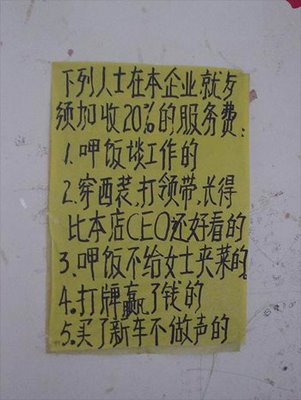 下列人士在本企业就歺
须加收20%的服务费:
1.呷饭谈工作的
2.穿西装.打领带.长得
比本店CEO还好看的
3.呷饭不给女士夹菜的.
4.打牌赢了钱的
5.买了新车不做声的